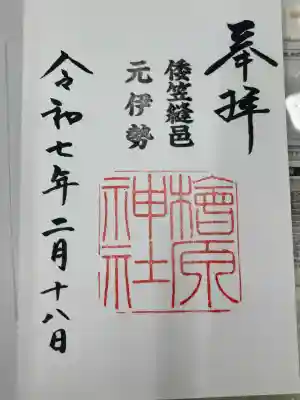 奉拝
倭笠縫邑
元伊勢
檜原
神社
令和七年二月十八日